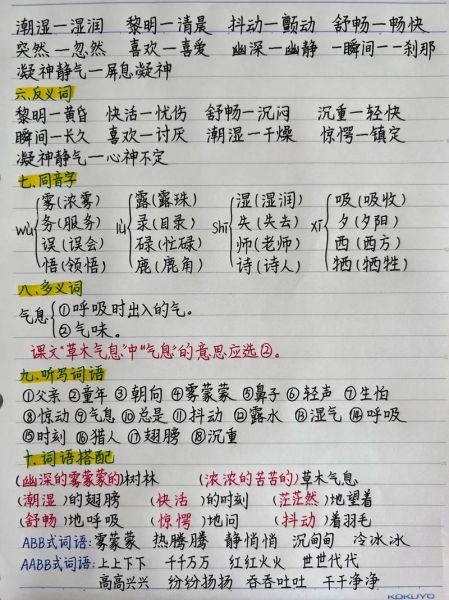 潮湿—湿润 黎明—清晨 抖动—颤动 舒畅—畅快
突然—忽然 喜欢—喜爱 幽深—幽静 一瞬间—一刹那
凝神静气—屏息凝神
六.反义词
黎明—黄昏 快活—忧伤 舒畅—沉闷 沉重—轻快
瞬间—长久 喜欢—讨厌 潮湿—干燥 惊愕—镇定
凝神静气—心神不定
七.同音字
wù 雾(浓雾) 务(服务) 误(误会) 悟(领悟)
lù 露(露珠) 录(目录) 碌(忙碌) 鹿(鹿角)
shī 湿(湿润) 失(失去) 师(老师) 诗(诗人)
xī 吸(吸收) 夕(夕阳) 西(西方) 牺(牺牲)
八.多义词
气息 ①呼吸时出入的气。
②气味。
课文"草木气息"中"气息"的意思应选②。
九.听写词语
①父亲 ②童年 ③朝向 ④雾蒙蒙 ⑤鼻子 ⑥轻声 ⑦生怕
⑧惊动 ⑨气息 ⑩总是 ⑪抖动 ⑫露水 ⑬湿气 ⑭呼吸
⑮时刻 ⑯猎人 ⑰翅膀 ⑱沉重
十.词语搭配
(幽深的雾蒙蒙的)树林 (浓浓的苦苦的)草木气息
(潮湿)的翅膀 (快活)的时刻 (茫茫然)地望着
(舒畅)地呼吸 (惊愕)地问 (抖动)着羽毛
ABB式词语:雾蒙蒙 热腾腾 静悄悄 沉甸甸 冷冰冰
AABB式词语:上上下下 千千万万 红红火火 世世代代
高高兴兴 纷纷扬扬 吞吞吐吐 干干净净
KOKUYO